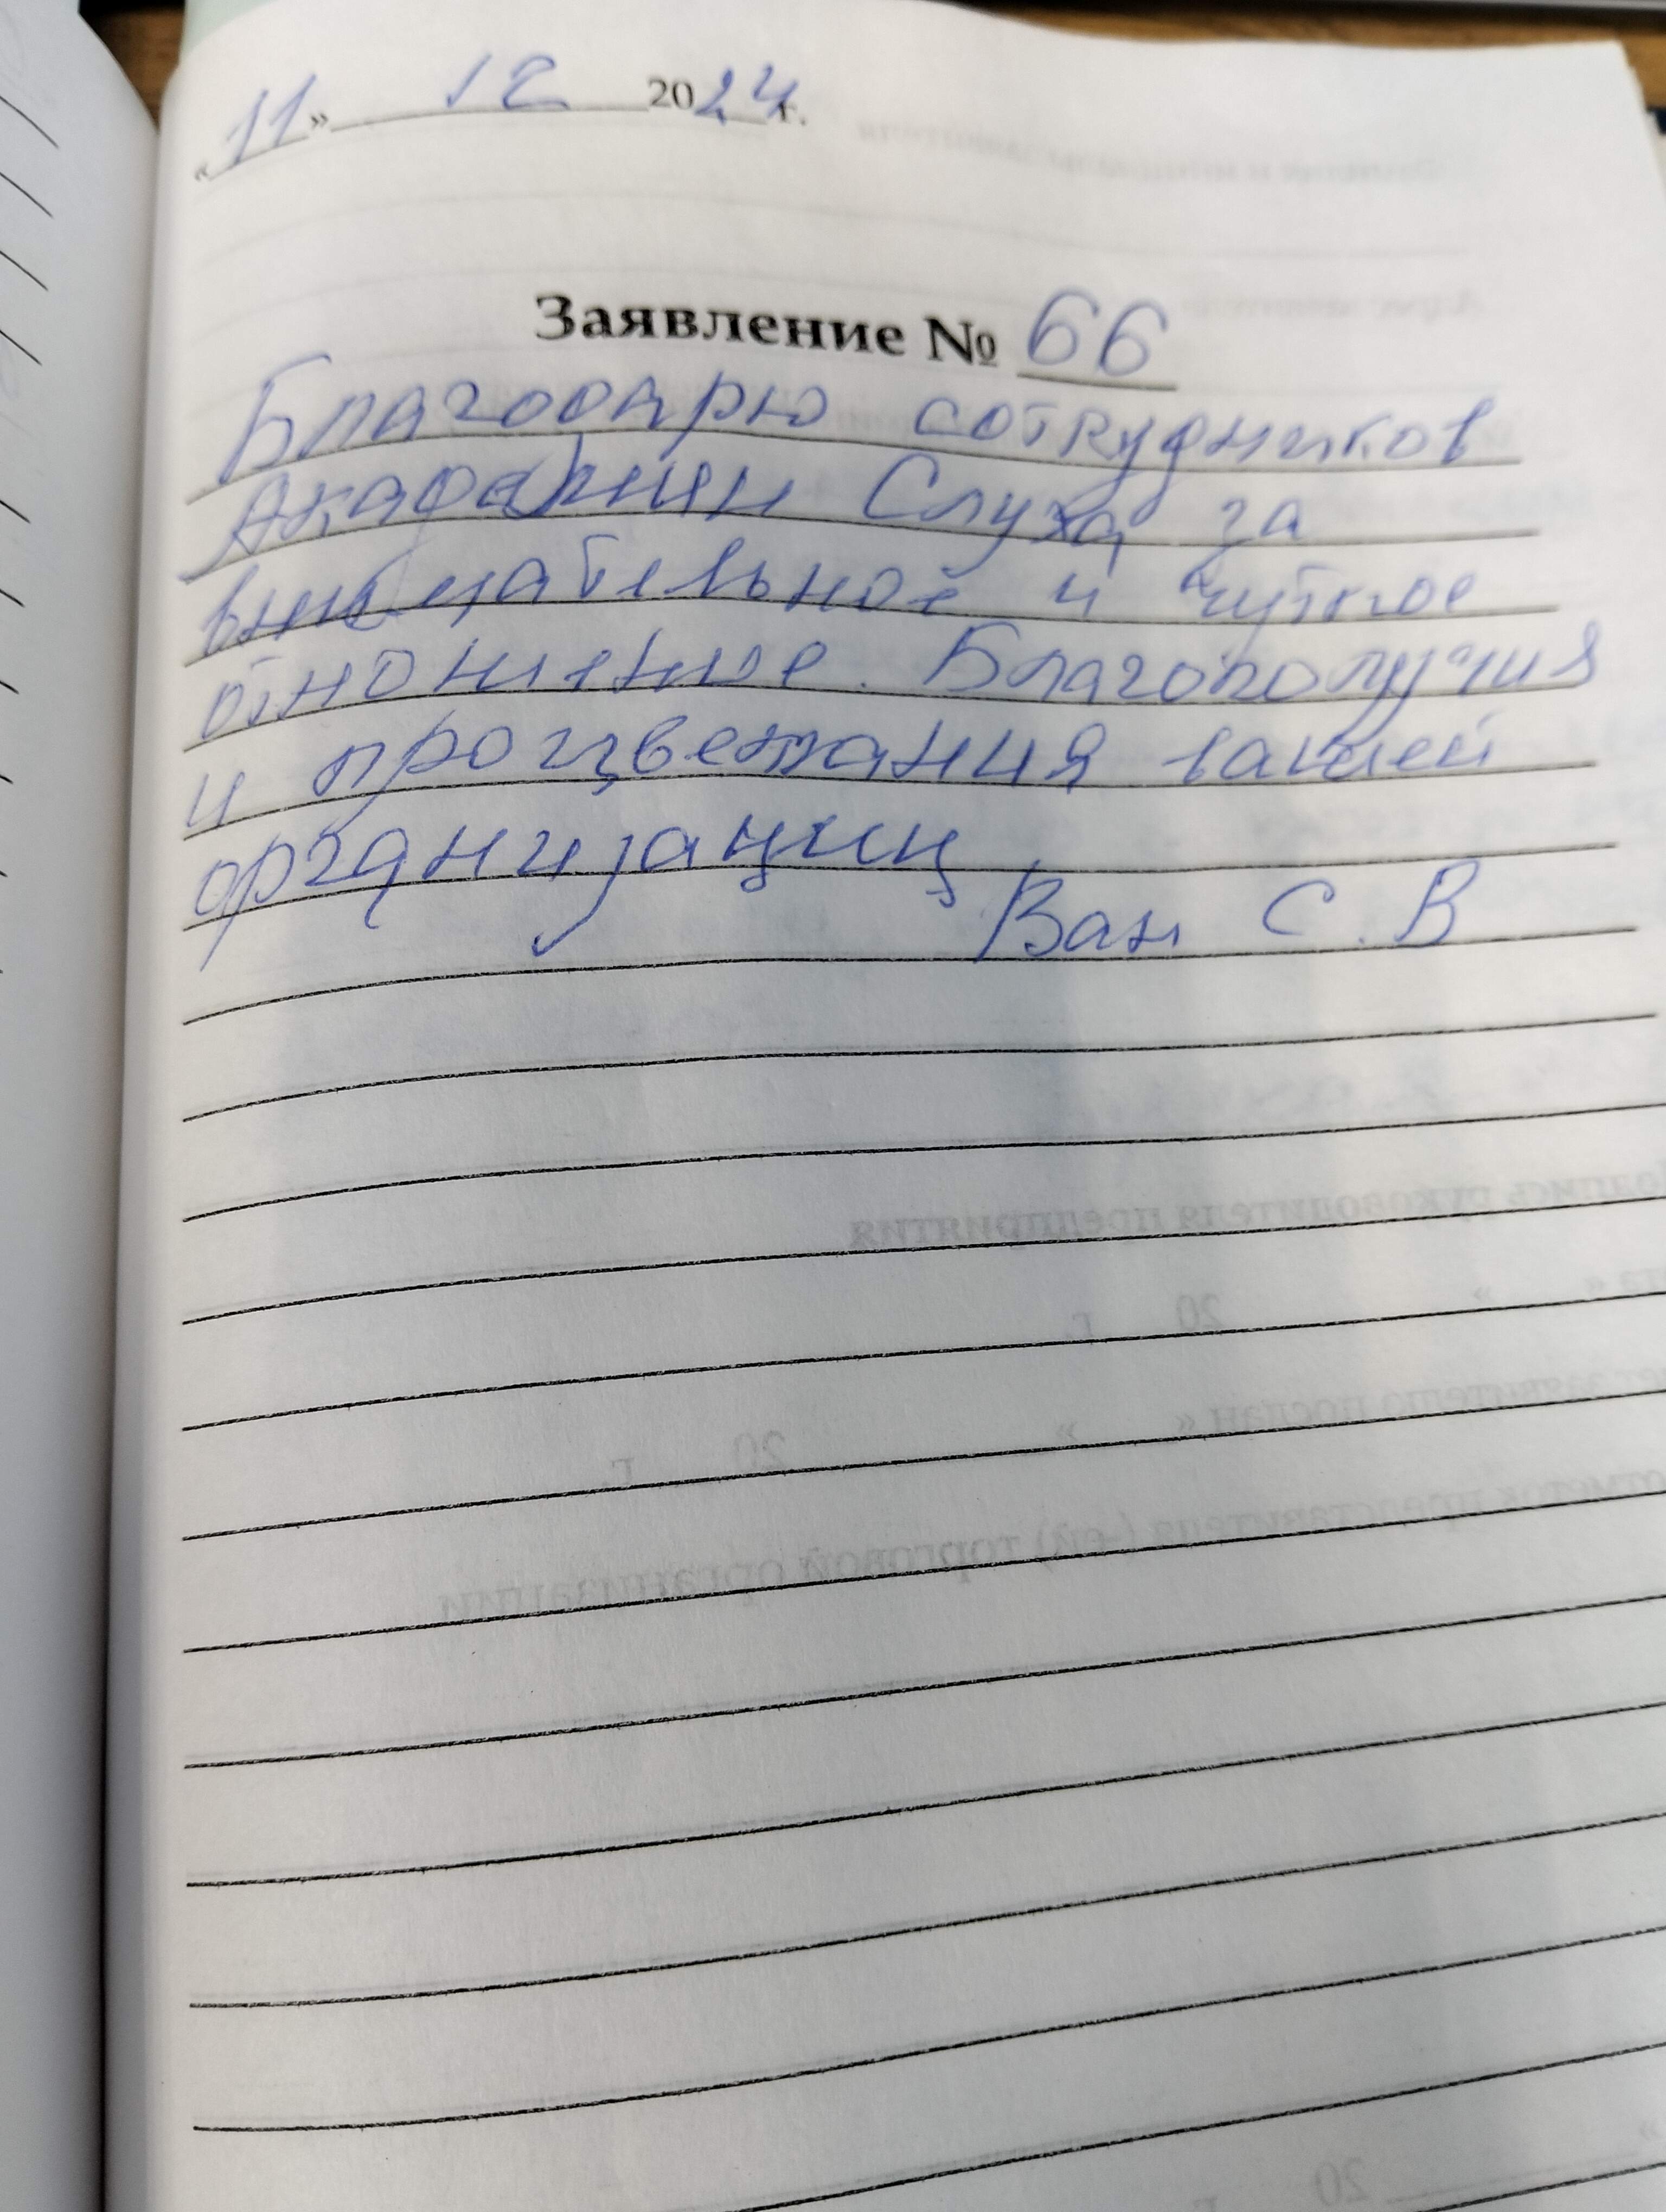 «11» 12 2024 г.
Заявление № 66
Благодарю сотрудников
Академии Слуха за
внимательное и чуткое
отношение. Благополучия
и процветания вашей
организации
Ван С.В